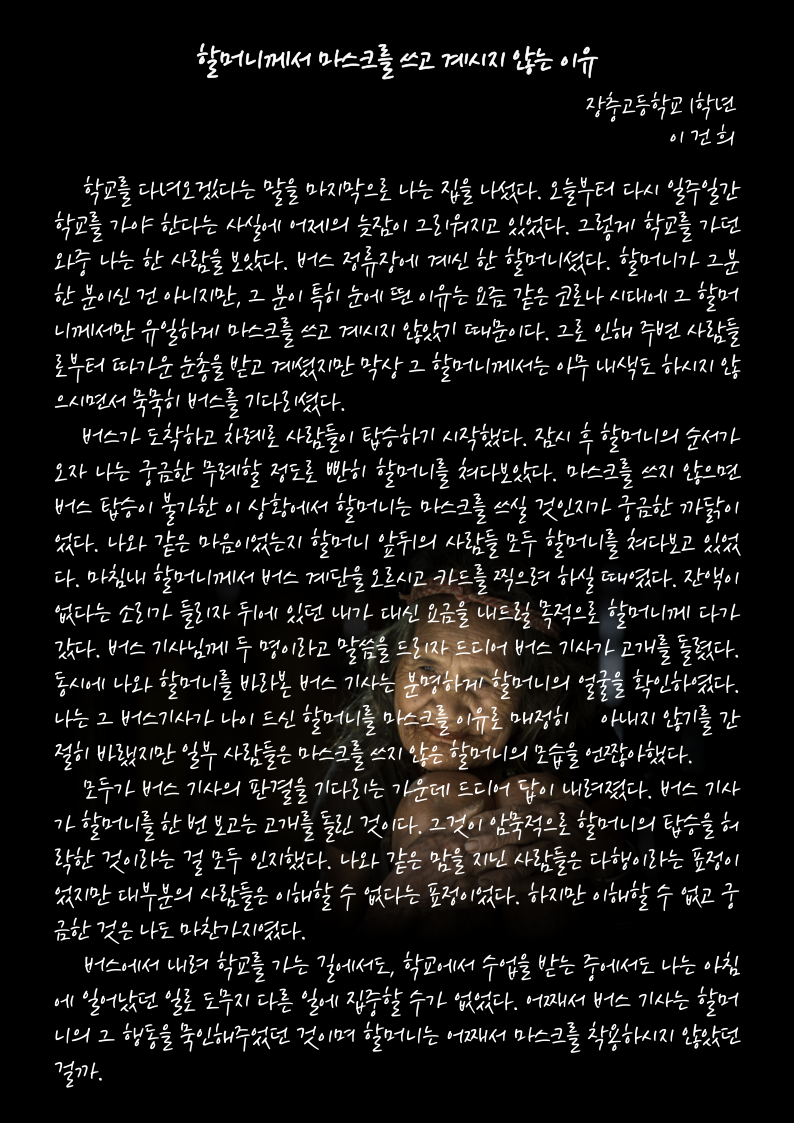 할머니께서 마스크를 쓰고 계시지 않는 이유
장충고등학교 1학년
이 건 희
학교를 다녀오겠다는 말을 마지막으로 나는 집을 나섰다. 오늘부터 다시 일주일간
학교를 가야 한다는 사실에 어제의 늦잠이 그리워지고 있었다. 그렇게 학교를 가던
와중 나는 한 사람을 보았다. 버스 정류장에 계신 한 할머니셨다. 할머니가 그분
한 분이신 건 아니지만, 그 분이 특히 눈에 띈 이유는 요즘 같은 코로나 시대에 그 할머
니께서만 유일하게 마스크를 쓰고 계시지 않았기 때문이다. 그로 인해 주변 사람들
로부터 따가운 눈총을 받고 계셨지만 막상 그 할머니께서는 아무 내색도 하시지 않
으시면서 묵묵히 버스를 기다리셨다.
버스가 도착하고 차례로 사람들이 탑승하기 시작했다. 잠시 후 할머니의 순서가
오자 나는 궁금한 무례할 정도로 빤히 할머니를 쳐다보았다. 마스크를 쓰지 않으면
버스 탑승이 불가한 이 상황에서 할머니는 마스크를 쓰실 것인지가 궁금한 까닭이
었다. 나와 같은 마음이었는지 할머니 앞뒤의 사람들 모두 할머니를 쳐다보고 있었
다. 마침내 할머니께서 버스 계단을 오르시고 카드를 찍으려 하실 때였다. 잔액이
없다는 소리가 들리자 뒤에 있던 내가 대신 요금을 내드릴 목적으로 할머니께 다가
갔다. 버스 기사님께 두 명이라고 말씀을 드리자 드디어 버스 기사가 고개를 돌렸다.
동시에 나와 할머니를 바라본 버스 기사는 분명하게 할머니의 얼굴을 확인하였다.
나는 그 버스기사가 나이 드신 할머니를 마스크를 이유로 매정히 아내지 않기를 간
절히 바랬지만 일부 사람들은 마스크를 쓰지 않은 할머니의 모습을 언짢아했다.
모두가 버스 기사의 판결을 기다리는 가운데 드디어 답이 내려졌다. 버스 기사
가 할머니를 한 번 보고는 고개를 돌린 것이다. 그것이 암묵적으로 할머니의 탑승을 허
락한 것이라는 걸 모두 인지했다. 나와 같은 맘을 지닌 사람들은 다행이라는 표정이
었지만 대부분의 사람들은 이해할 수 없다는 표정이었다. 하지만 이해할 수 없고 궁
금한 것은 나도 마찬가지였다.
버스에서 내려 학교를 가는 길에서도, 학교에서 수업을 받는 중에서도 나는 아침
에 일어났던 일로 도무지 다른 일에 집중할 수가 없었다. 어째서 버스 기사는 할머
니의 그 행동을 묵인해주었던 것이며 할머니는 어째서 마스크를 착용하시지 않았던
걸까.